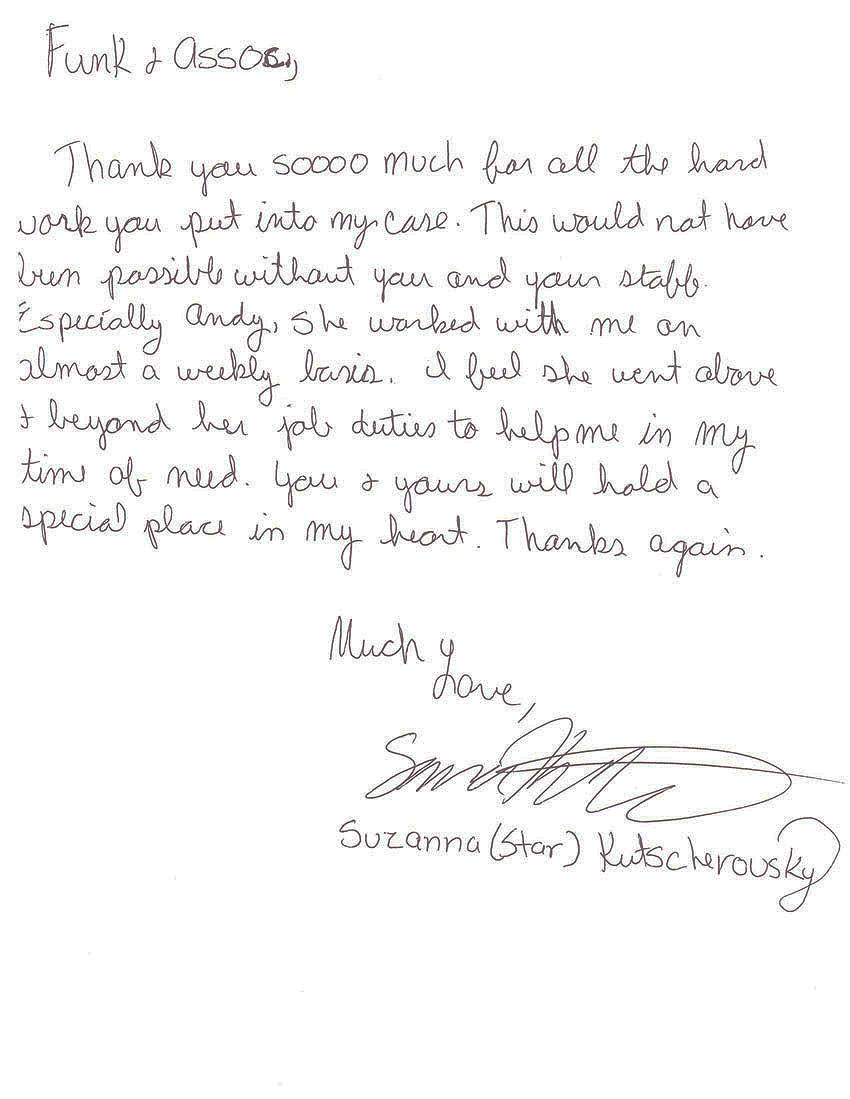 Funk & Assoc,
Thank you soooo much for all the hard
work you put into my case. This would not have
been possible without you and your staff.
Especially Andy, she worked with me on
almost a weekly basis. I feel she went above
& beyond her job duties to help me in my
time of need. You & yours will hold a
special place in my heart. Thanks again.
Much
Love,
Suzanna (Star) Kutscherousky